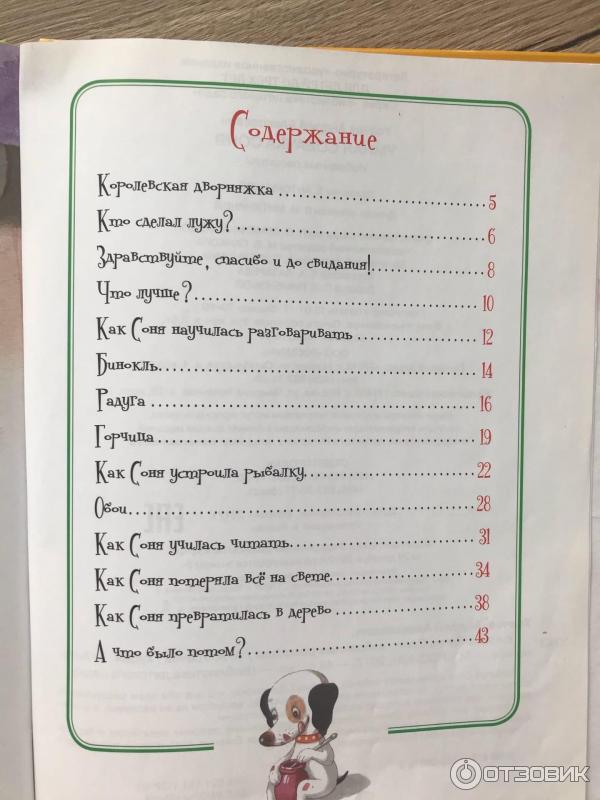 Содержание
Королевская дворняжка ........ 5
Кто сделал лужу? ........ 6
Здравствуйте, спасибо и до свидания! ........ 8
Что лучше? ........ 10
Как Соня научилась разговаривать ........ 12
Бинокль ........ 14
Радуга ........ 16
Горчица ........ 19
Как Соня устроила рыбалку ........ 22
Обои ........ 28
Как Соня училась читать ........ 31
Как Соня потеряла всё на свете ........ 34
Как Соня превратилась в дерево ........ 38
А что было потом? ........ 43
ОТЗОВИК